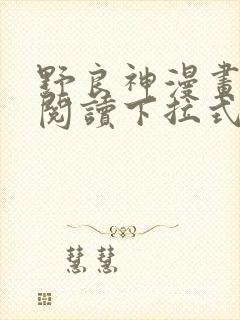 野良神漫畫
閱讀下拉式
慧慧